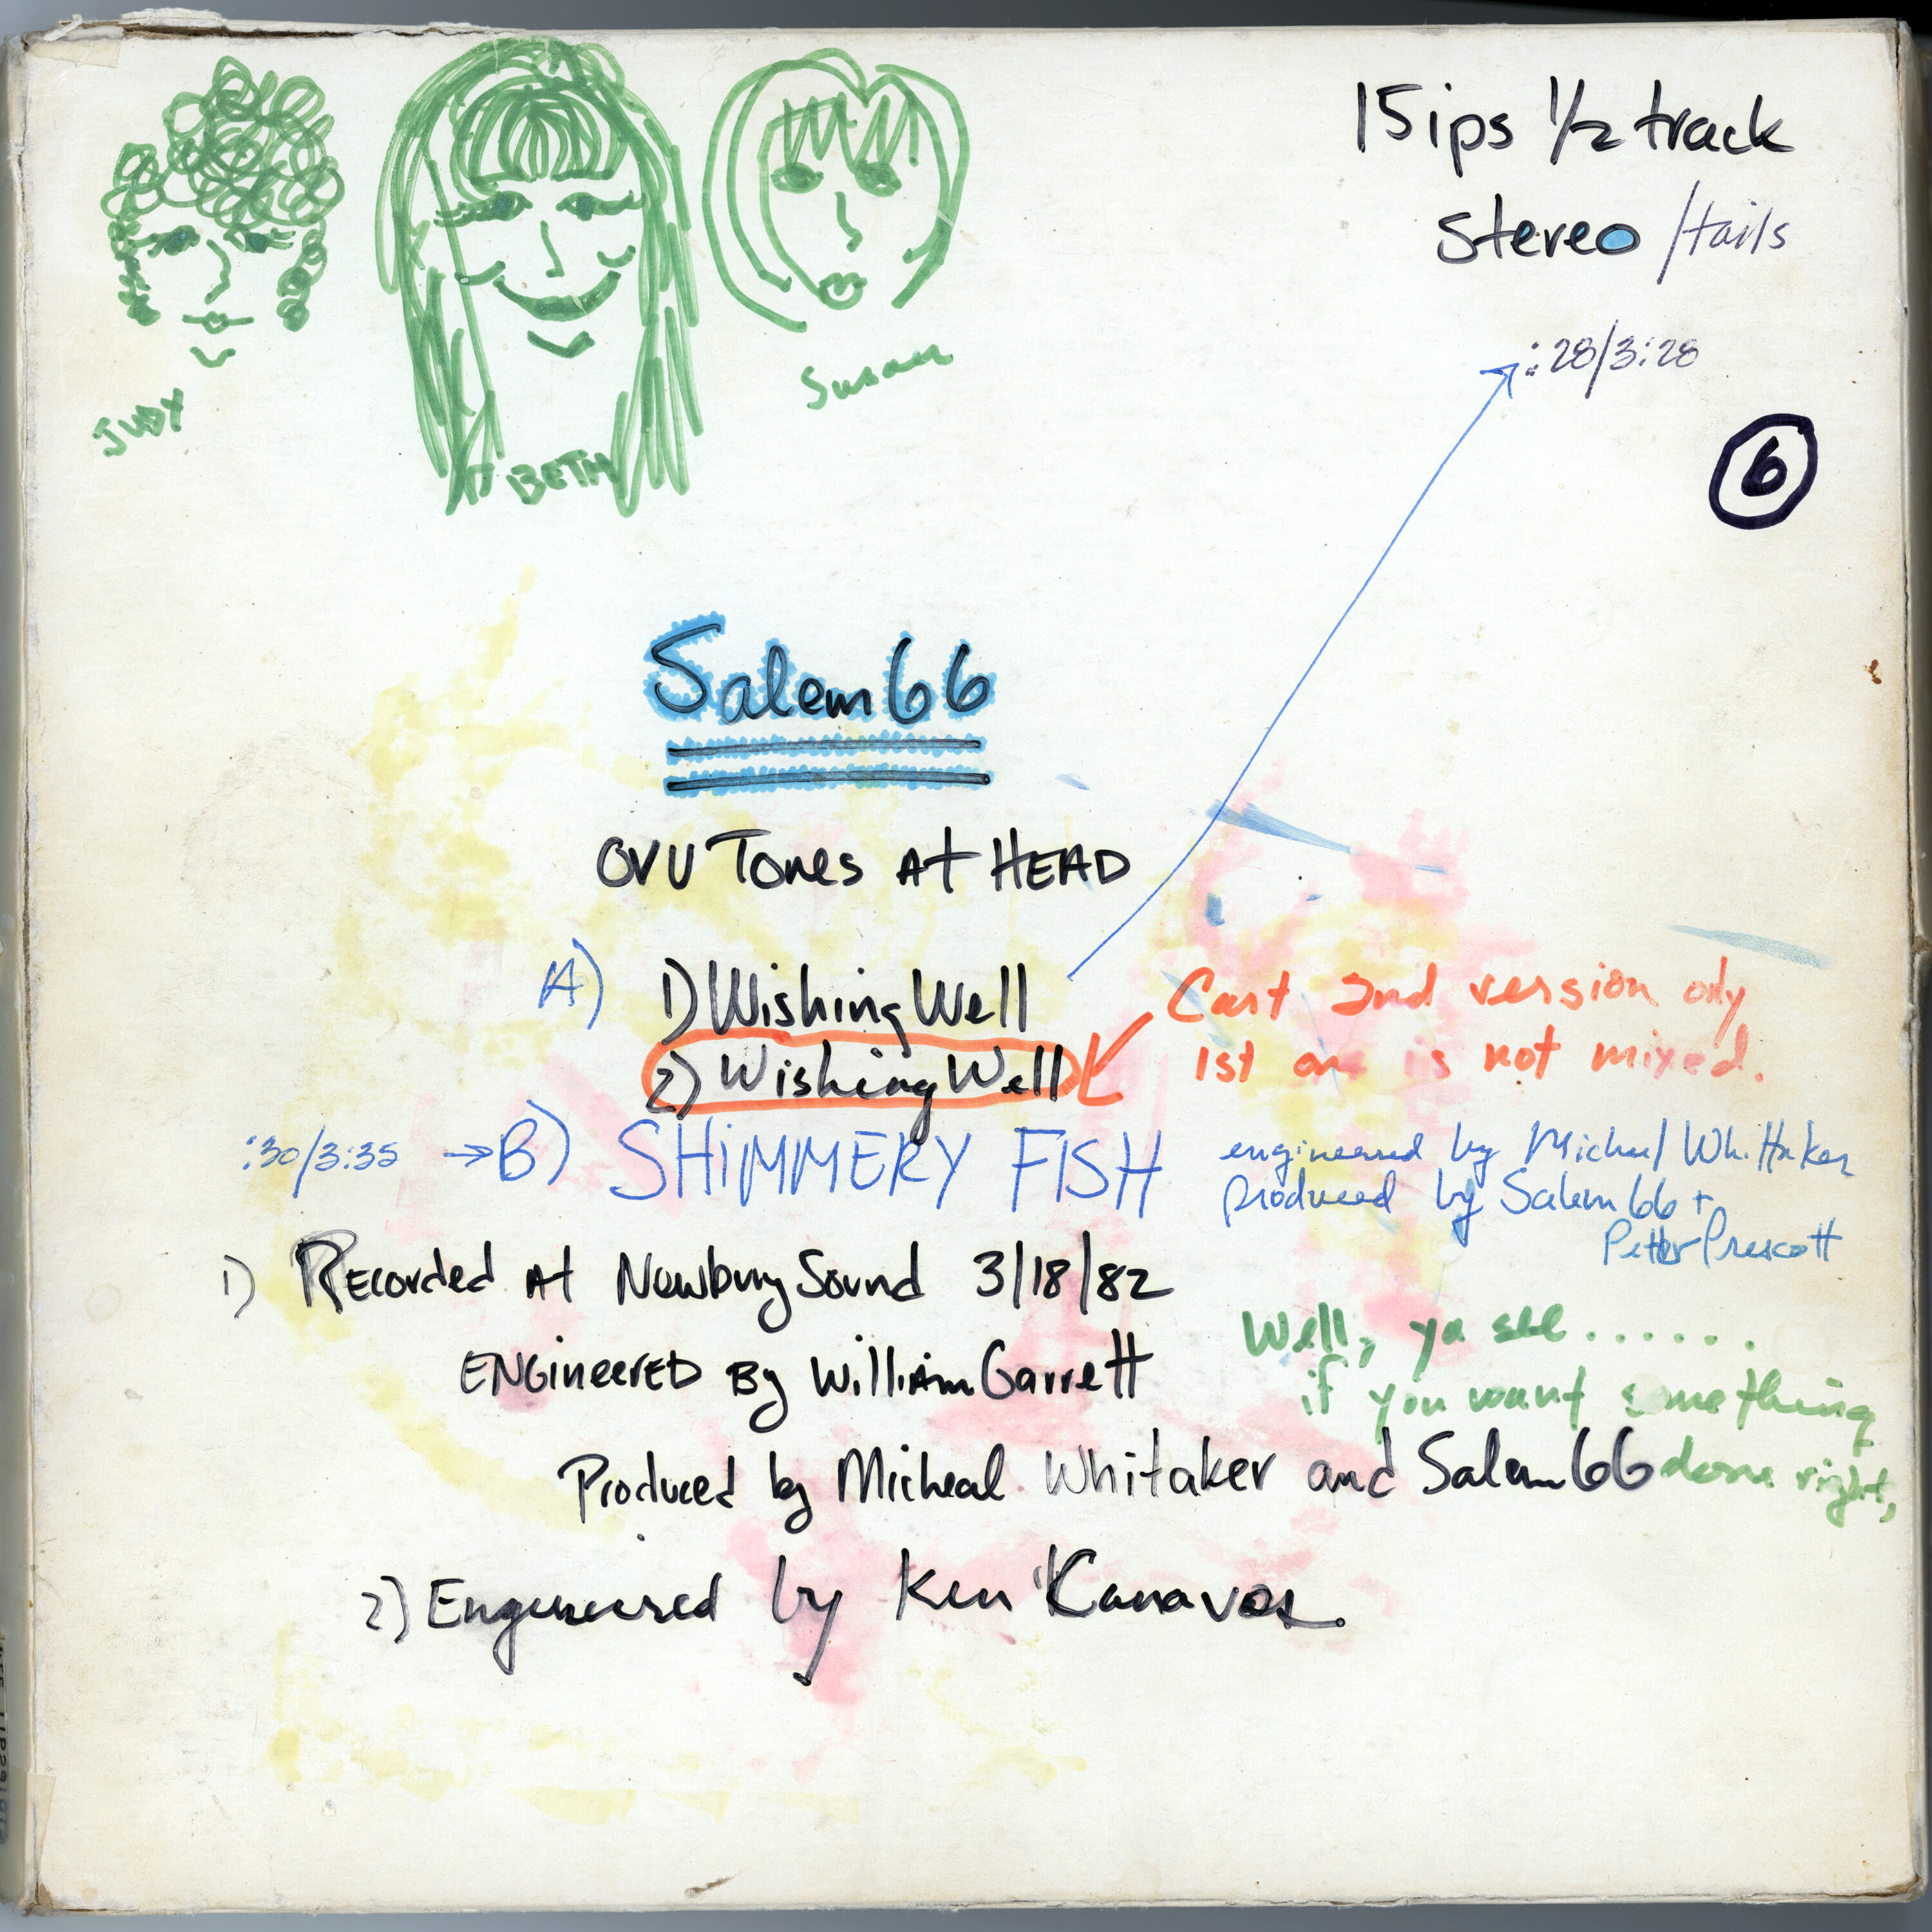 15 ips 1/2 track
Stereo /tails
:28/3:28
6
JUDY
BETH
Susan
Salem 66
OVU Tones At HEAD
A) 1) Wishing Well
2) Wishing Well
Cart 2nd version only
1st one is not mixed.
:30/3:35 → B) SHIMMERY FISH
engineered by Michael Whittaker
produced by Salem 66 +
Peter Prescott
1) Recorded At Newbury Sound 3/18/82
ENGineerED By William Garrett
Produced by Micheal Whitaker and Salem 66
Well, ya see......
if you want something
done right,
2) Engineered by Ken Kanavos.